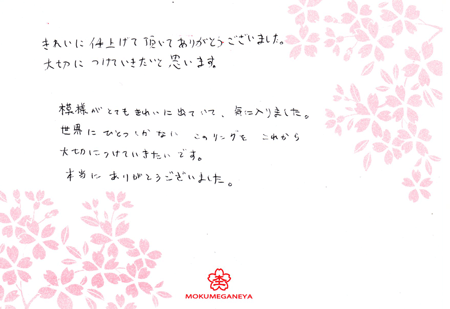 きれいに仕上げて頂いてありがとうございました。
大切につけていきたいと思います。
模様がとてもきれいに出ていて、気に入りました。
世界にひとつしかない このリングを これから
大切につけていきたいです。
本当に ありがとうございました。
MOKUMEGANEYA